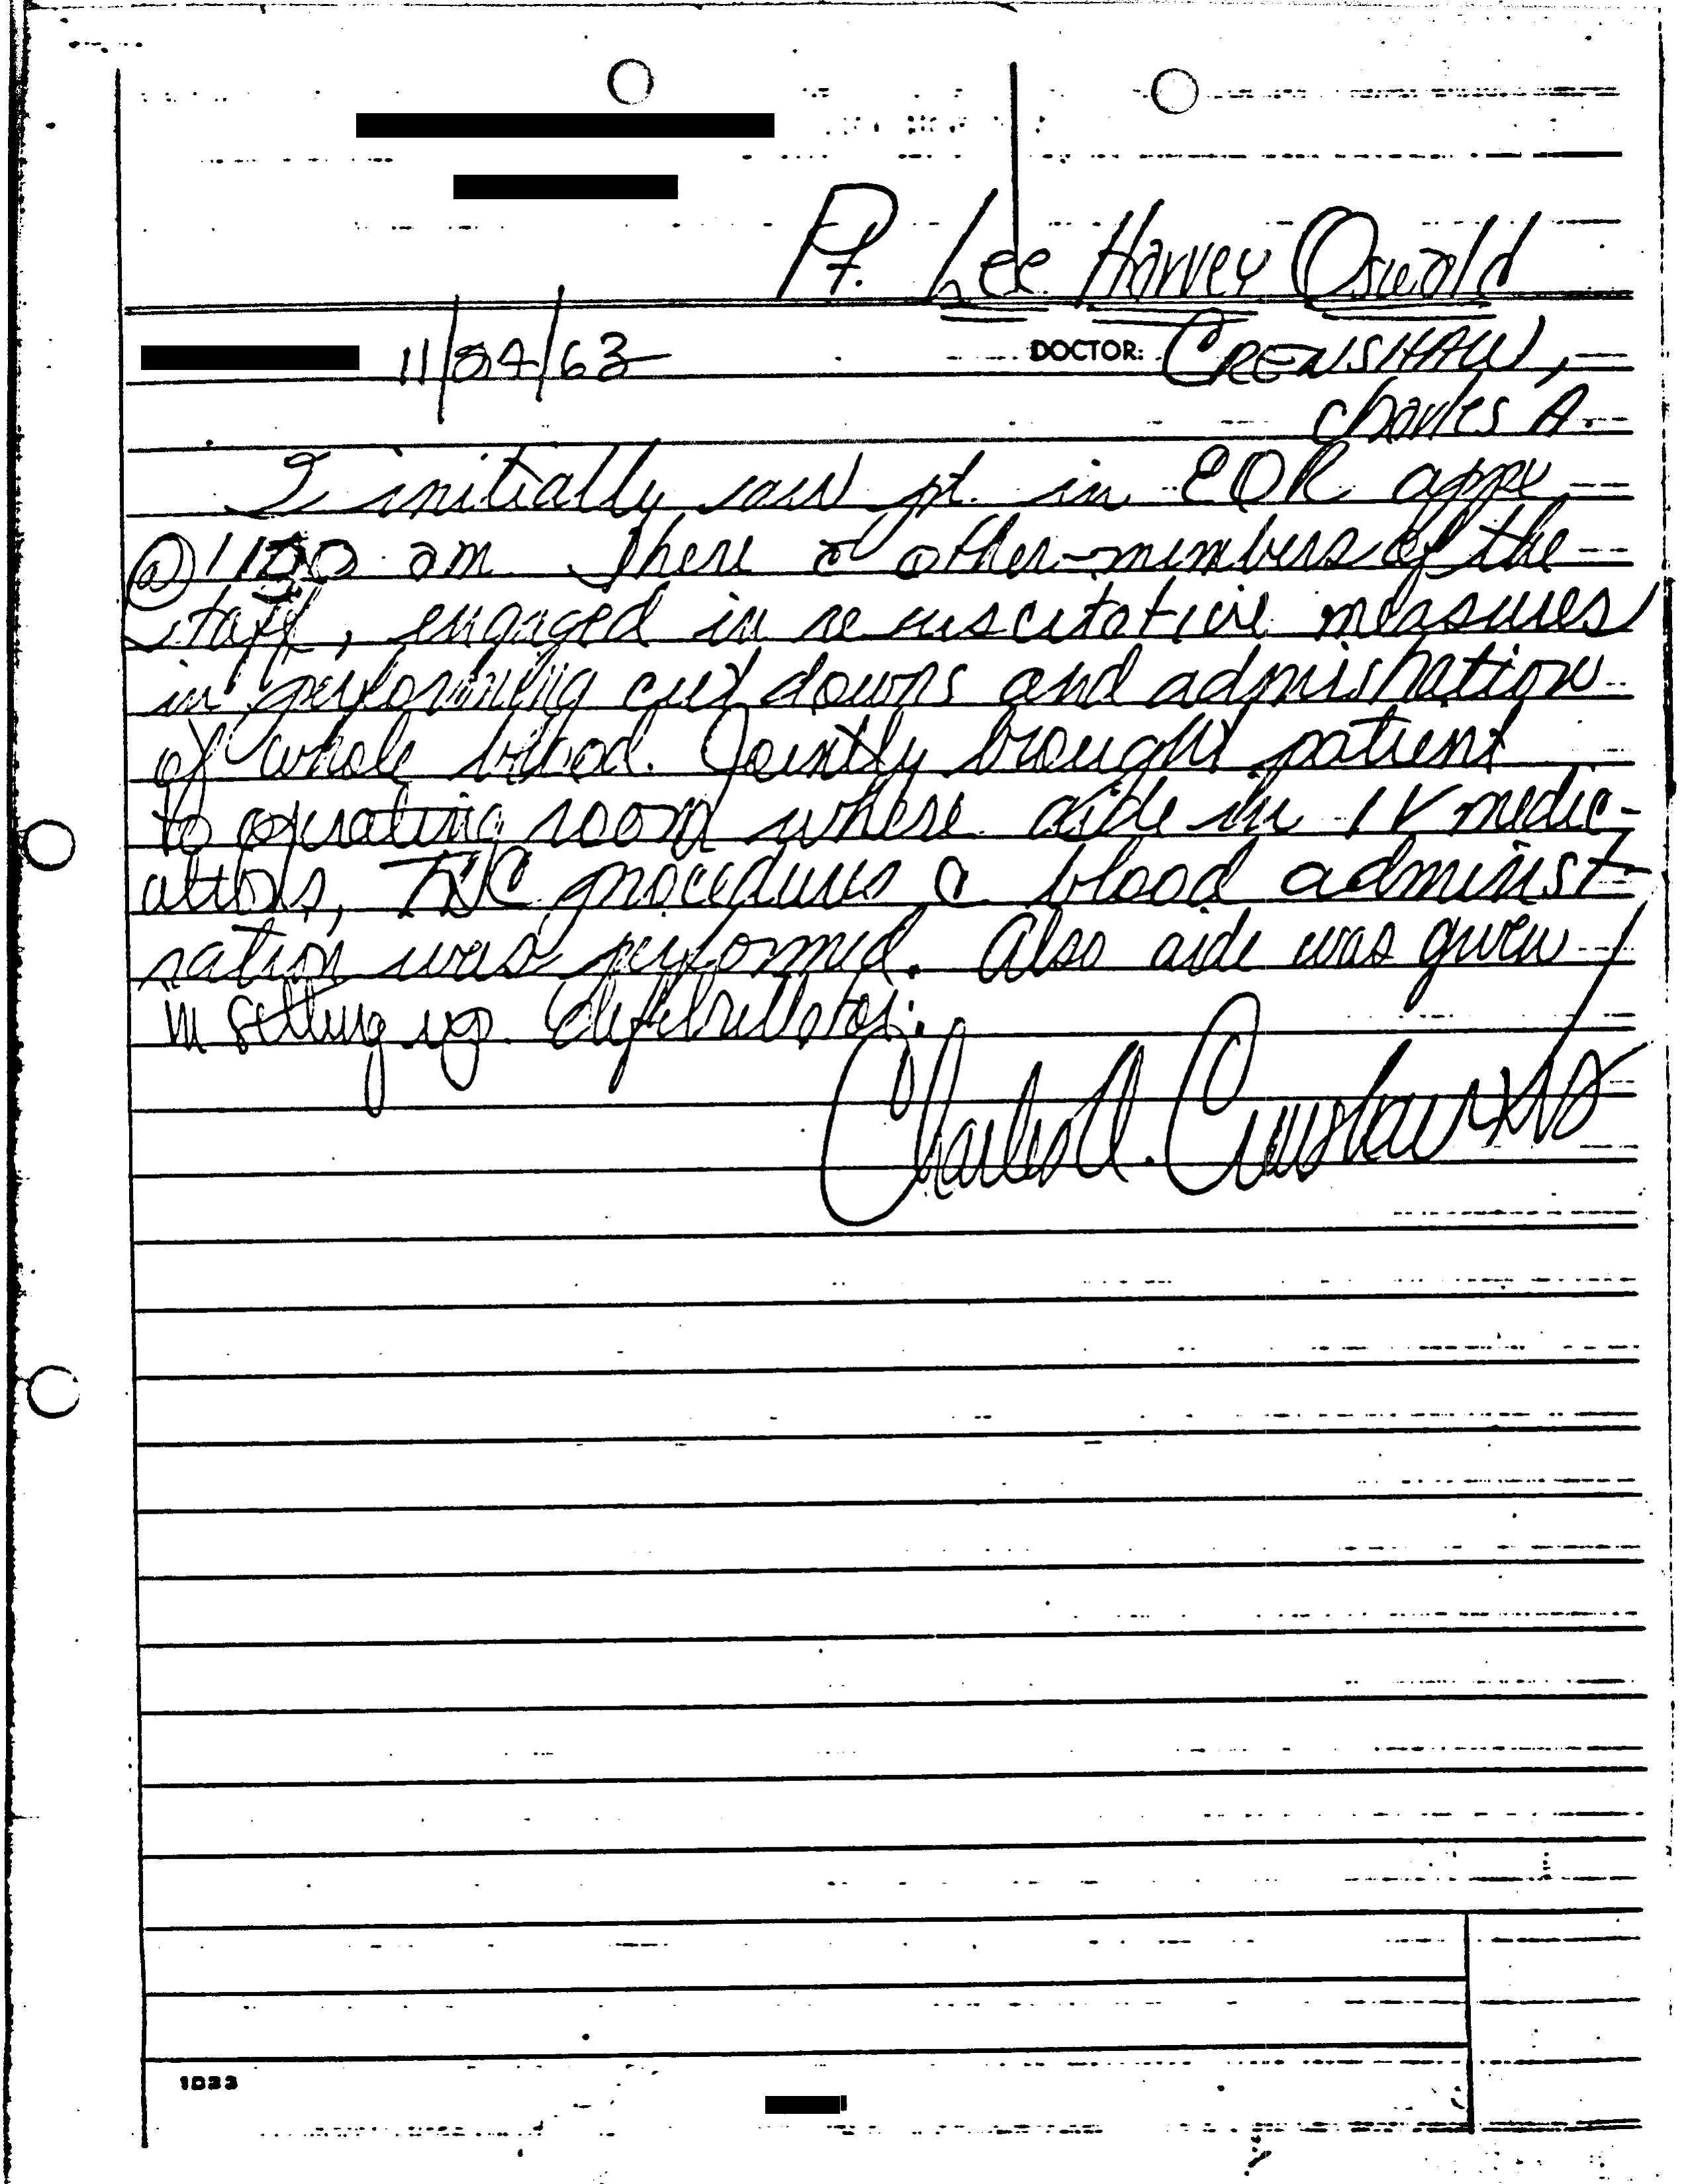 Pt. Lee Harvey Oswald
11/24/63 DOCTOR: CRENSHAW,
Charles A.
I initially saw pt. in EOR appx
@ 11 am. There c̄ other members of the
staff, engaged in resuscitative measures
in performing cut downs and admistration
of whole blood. Jointly brought patient
to operating room where aide in IV medic-
ations, procedures c̄ blood administ-
ration was performed. Also aide was given
in setting up defibrillator.
Charles A. Crenshaw MD
1033